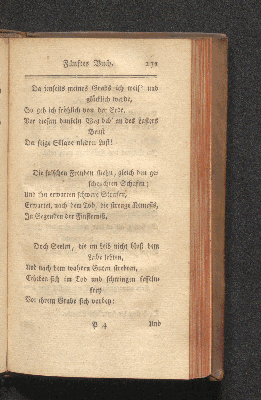 Fünftes Buch.
Da jenseits meines Grabs ich weis' und
glücklich werde,
So geh ich fröhlich von der Erde.
Vor diesem dunkeln Weg beb' an des Lasters
Hand
Der feige Sklave niedrer Lust!
Die falschen Freuden fliehn, gleich den ge-
scheuchten Schafen;
und ihn erwarten schwere Strafen,
Erwartet, nach dem Tod, die strenge Nemesis,
In Gegenden der Finsterniß.
Doch Seelen, die im Leib nicht bloß dem
Leibe lebten,
Und nach dem wahren Guten strebten,
Erheben sich im Tod und schwingen fessell-
frey
Vor ihrem Grabe sich vorbey:
P 4 Und